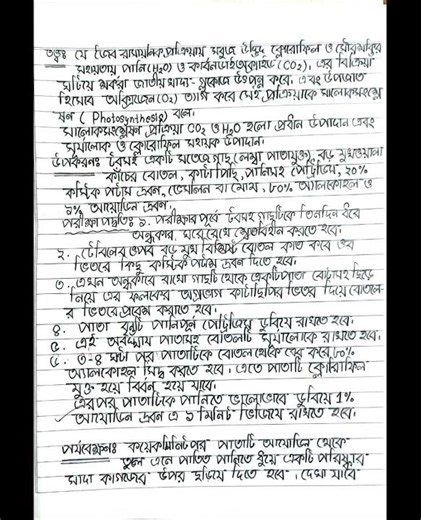 তত্ত্বঃ যে জৈব রাসায়নিক প্রক্রিয়ায় সবুজ উদ্ভিদ ক্লোরোফিল ও সৌরশক্তির
সহায়তায় পানি (H₂O) ও কার্বনডাই অক্সাইড (CO₂), এর বিক্রিয়া
ঘটিয়ে শর্করা জাতীয় খাদ্য- গ্লুকোজ উৎপন্ন করে। এবং উপজাত
হিসেবে অক্সিজেন (O₂) ত্যাগ করে সেই প্রক্রিয়াকে সালোকসংশ্লে
ষন ( Photosynthesis) বলে।
সালোকসংশ্লেষন প্রক্রিয়া CO₂ ও H₂O হলো প্রধান উপাদান এবং
সূর্যালোক ও ক্লোরোফিল সহায়ক উপাদান।
উপকরনঃ টবসহ একটি সতেজ গাছ (লম্বা পাতাযুক্ত), বড় মুখওয়ালা
কাঁচের বোতল, কাটা ছিপি, পানিসহ পেট্রিডিস, ২০%
কস্টিক পটাস দ্রবন, ভেসলিন বা মোম, ৮০% অ্যালকোহল ও
১% আয়োডিন দ্রবন।
পরীক্ষা পদ্ধতিঃ ১. পরীক্ষার পূর্বে টবসহ গাছটিকে তিনদিন ধরে
অন্ধকার ঘরে রেখে শ্বেতবিহীন করতে হবে।
২. টেবিলের ওপর বড় মুখ বিশিষ্ট বোতল কাত করে ওর
ভিতরে কিছু কস্টিক পটাস দ্রবন দিতে হবে।
৩. এখন অন্ধকারে রাখা গাছটি থেকে একটি পাতা বোটাসহ ছিড়ে
নিয়ে এর ফলকের অগ্রভাগ কাটা ছিপির ভিতর দিয়ে বোতলে-
র ভিতরে প্রবেশ করাতে হবে।
৪. পাতা বৃন্তটি পানিপূর্ন পেট্রিডিসে ডুবিয়ে রাখতে হবে।
৫. এই অবস্থায় পাতাসহ বোতলটি সূর্যালোকে রাখতে হবে।
৫. ৩-৪ ঘন্টা পর পাতাটিকে বোতল থেকে বের করে ৮০%
অ্যালকোহলে সিদ্ধ করতে হবে। এতে পাতাটি ক্লোরোফিল-
মুক্ত হয়ে বিবর্ন হয়ে যাবে।
এরপর পাতাটিকে পানিতে ভালোভাবে ডুবিয়ে 1%
আয়োডিন দ্রবন এ ১ মিনিট ভিজিয়ে রাখতে হবে।
পর্যবেক্ষনঃ কয়েক মিনিট পর পাতাটি আয়োডিন থেকে
তুলে এনে পাতিত পানিতে ধুঁয়ে একটি পরিষ্কার
সাদা কাগজের উপর ছড়িয়ে দিতে হবে। দেখা যাবে